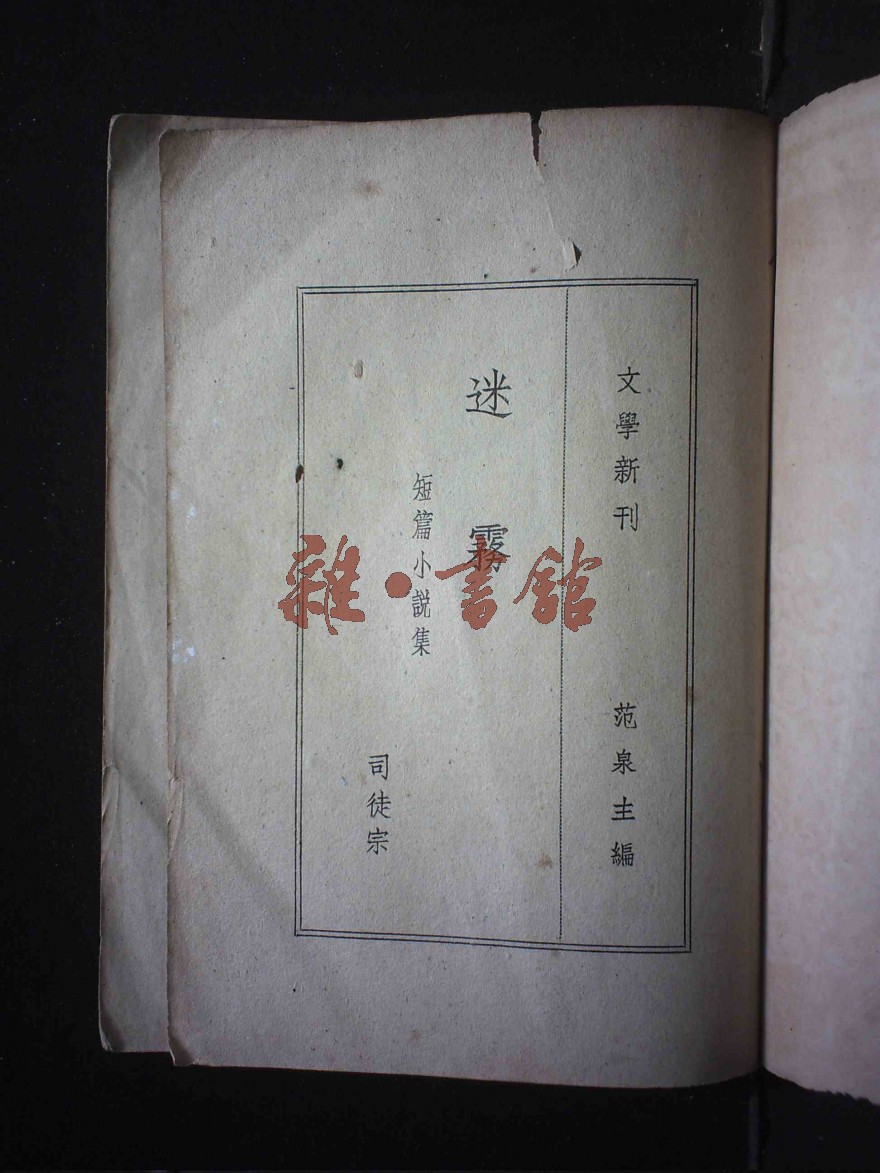 文學新刊　范泉主編
迷霧
短篇小説集
司徒宗
雜·書館